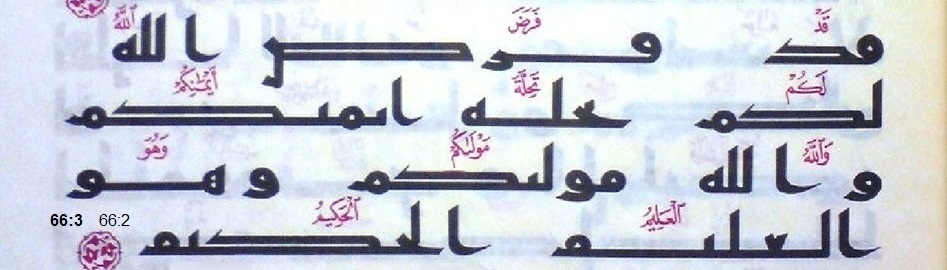 قَدْ فَرَضَ ٱللَّهُ
قد فرض الله
لَكُمْ تَحِلَّةَ أَيْمَٰنِكُمْ
لكم تحلة ايمنكم
وَٱللَّهُ مَوْلَىٰكُمْ وَهُوَ
و الله مولىكم و هو
ٱلْعَلِيمُ ٱلْحَكِيمُ
العليم الحكيم
66:3 66:2